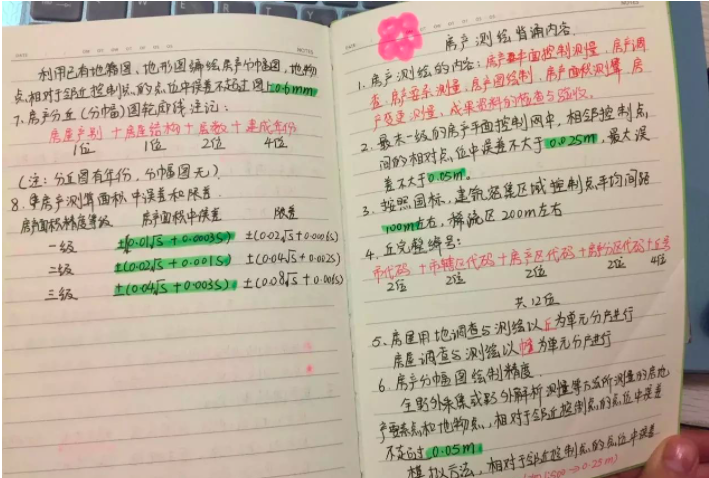 房产测绘背诵内容
1. 房产测绘的内容: 房产平面控制测量, 房产调
查, 房产要素测量, 房产图绘制, 房产面积测算, 房
产变更测量、成果资料的检查与验收.
2. 最末一级的房产平面控制网中, 相邻控制点
间的相对点位中误差不大于0.025m, 最大误
差不大于0.05m.
3. 按照国标, 建筑密集区域控制点平均间距
100m左右, 稀疏区200m左右
4. 丘完整编号:
市代码 + 市辖区代码 + 房产区代码 + 房产分区代码 + 丘号
2位 2位 2位 2位 4位
共12位
5. 房屋用地调查与测绘以丘为单元分户进行
房屋调查与测绘以幢为单元分户进行
6. 房产分幅图绘制精度.
全野外采集或野外解析测量等方法所测量的房地
产要素点和地物点, 相对于邻近控制点的点位中误差
不超过0.05m.
模拟方法, 相对于邻近控制点的点位中误差
利用已有地籍图、地形图编绘房产分幅图, 地物
点相对于邻近控制点的点位中误差不超过图上0.6mm.
7. 房产分丘(分幅)图轮廓线注记:
房屋产别 + 房屋结构 + 层数 + 建成年份
1位 1位 2位 4位
(注: 分丘图有年份, 分幅图无).
8. 集房产测算面积中误差和限差.
房产面积精度等级 房产面积中误差 限差
一级 ±(0.01√S + 0.0003S) ±(0.02√S + 0.0006S)
二级 ±(0.02√S + 0.001S) ±(0.04√S + 0.002S)
三级 ±(0.04√S + 0.003S) ±(0.08√S + 0.006S)